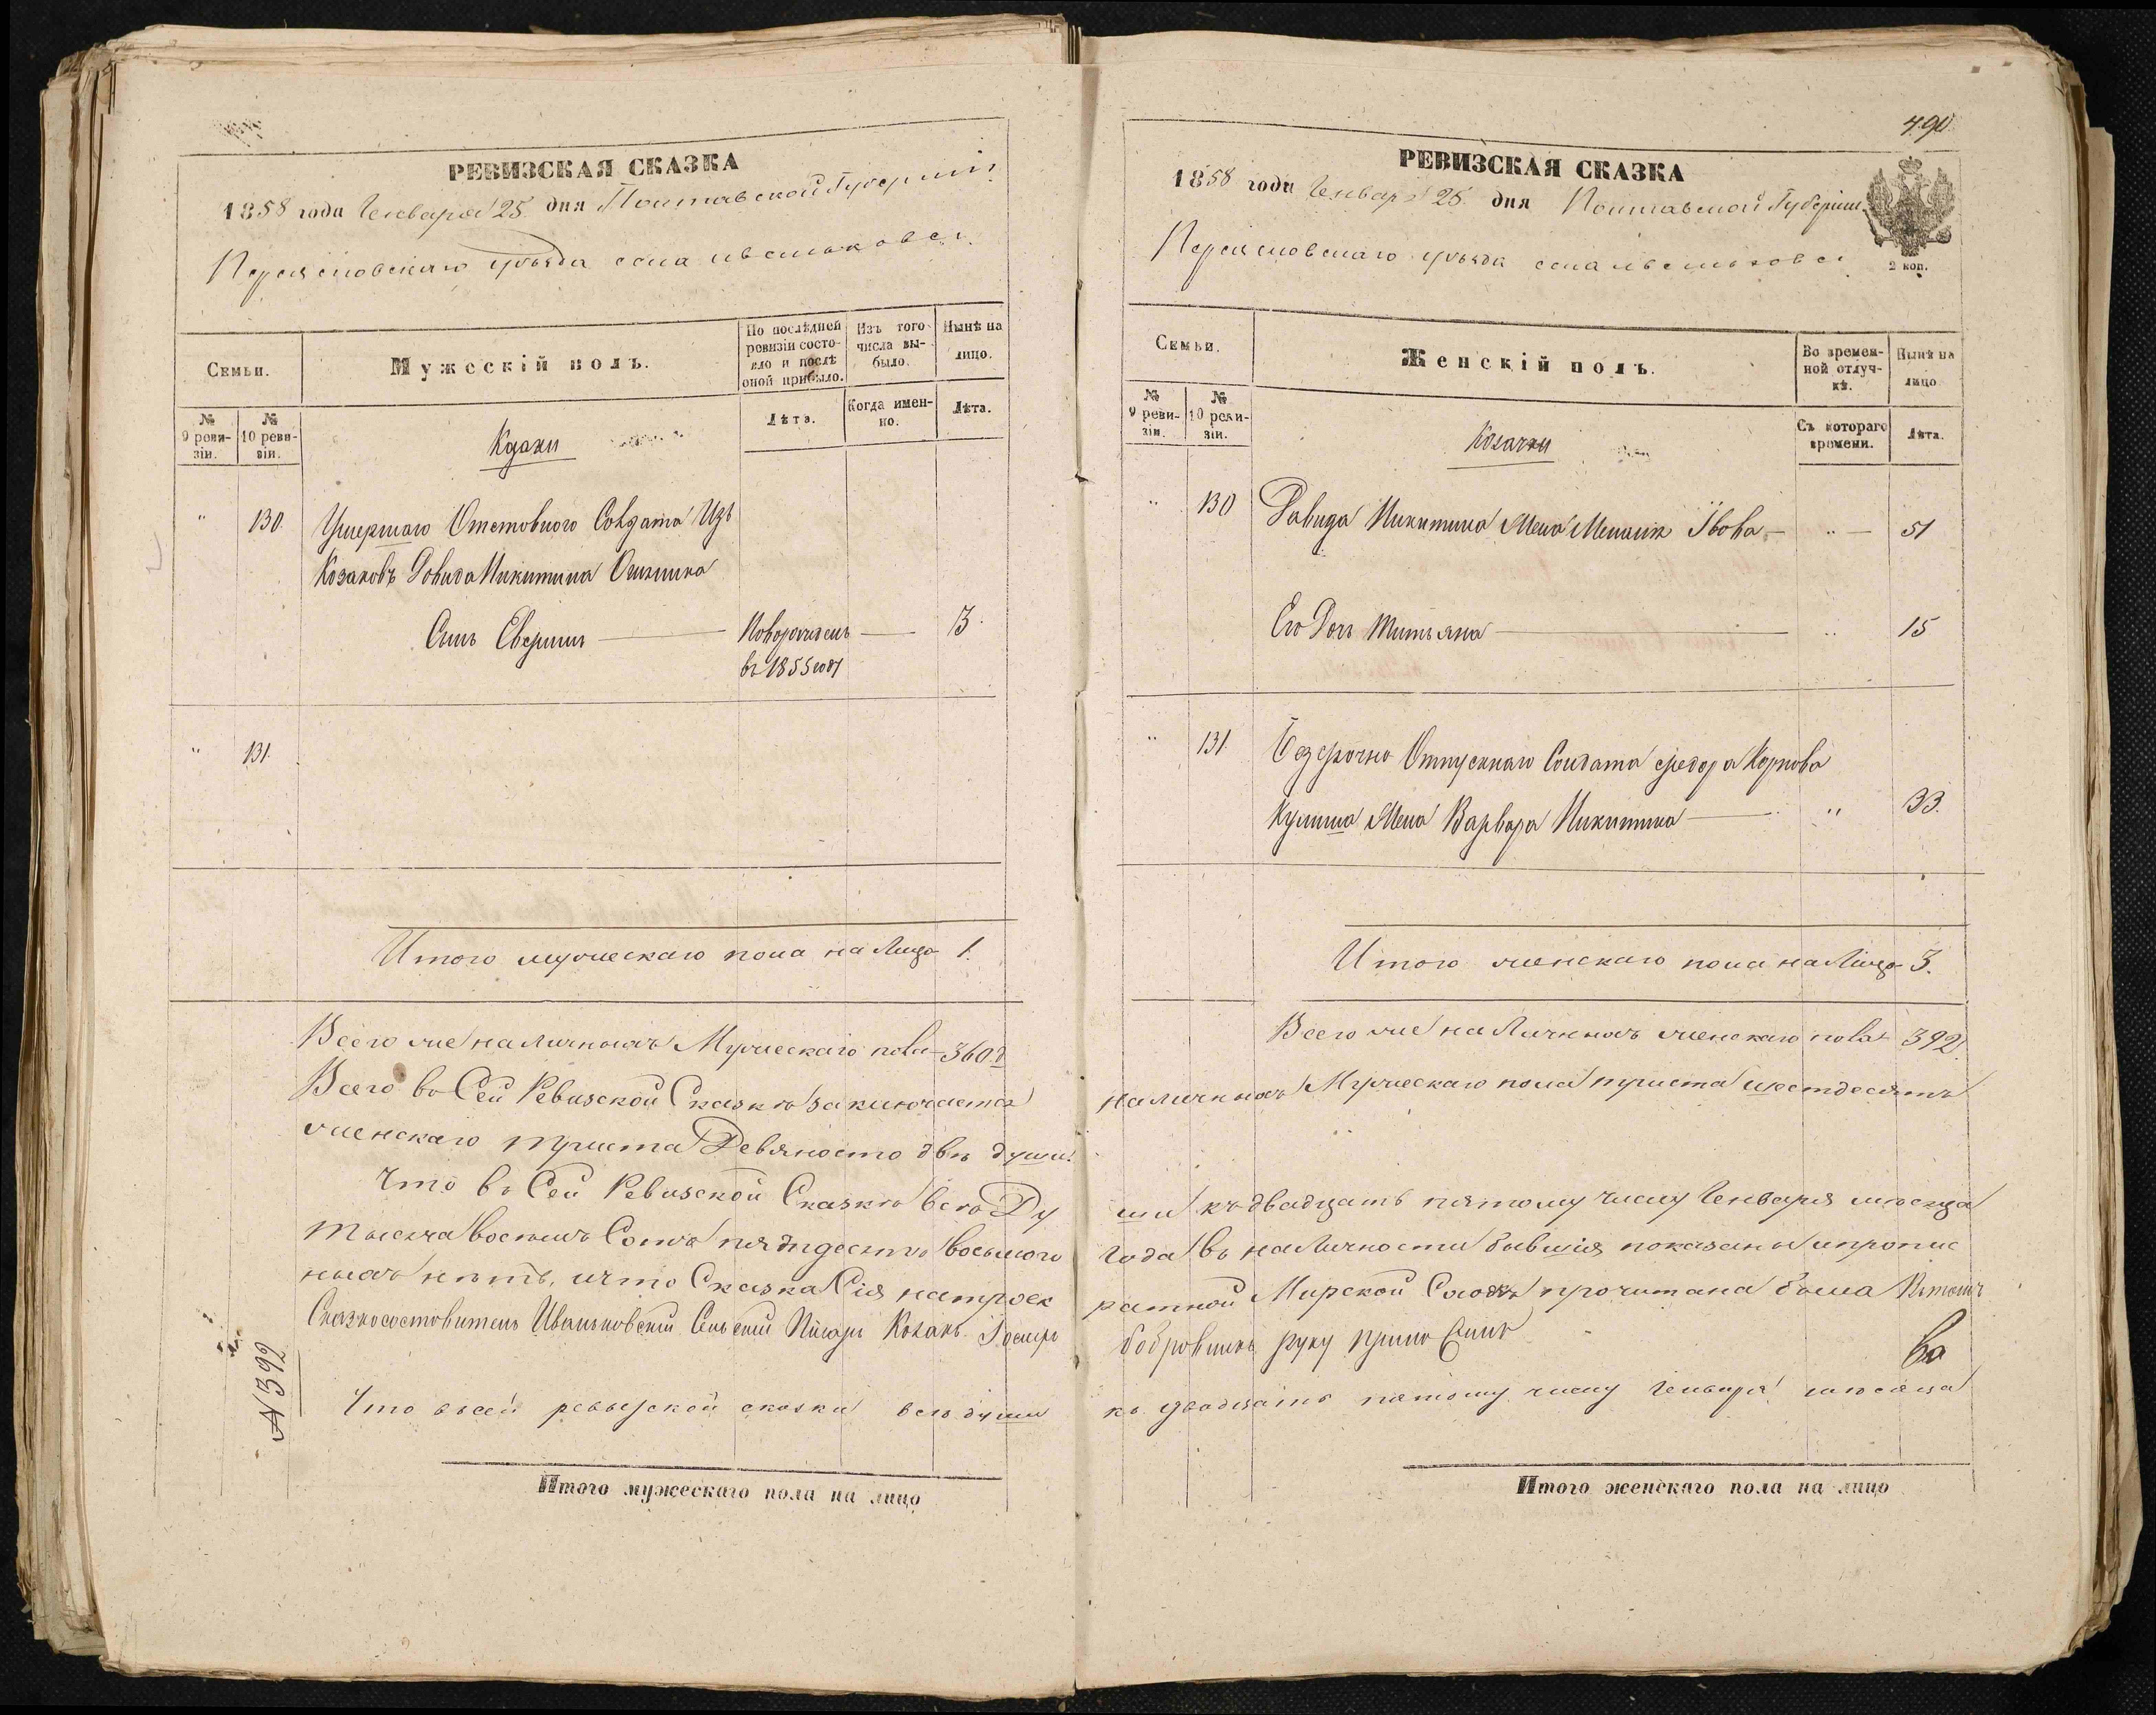 РЕВИЗСКАЯ СКАЗКА
1858 года Генваря 25 дня Полтавской Губерніи
Переясловскаго уѣзда села Иваньковъ
Семьи.
Мужескій полъ.
По послѣдней ревизіи состояло и послѣ оной прибыло.
Изъ того числа выбыло.
Нынѣ на лицо.
№ 9 ревизіи.
№ 10 ревизіи.
Козаки
Лѣта.
Когда именно.
Лѣта.
" 130. Умершаго Отставного Солдата Изъ
Козаковъ Довида Никитина
Сынъ Новорожденъ 3.
въ 1855 году
" 131.
Итого мужескаго пола на Лицо 1.
Всего же наличныхъ Мужескаго пола 360.
Всего въ Сей Ревизской Сказкѣ заключается
женскаго триста Девяносто двѣ души.
Что въ Сей Ревизской Сказкѣ всѣ Ду
тысяча восемь Сотъ пядидесятъ восьмого
ныхъ нѣтъ, и что Сказка Сія на
Сказкосоставитель Иваньковскій Сельскій Писарь Козакъ
№ 392
Что в сей ревизской сказки всѣ души
Итого мужескаго пола на лицо
490
РЕВИЗСКАЯ СКАЗКА
1858 года Генваря 25 дня Полтавской Губерніи
Переясловскаго уѣзда села Иваньковъ
2 коп.
Семьи.
Женскій полъ.
Во временной отлучкѣ.
Нынѣ на лицо
№ 9 ревизіи.
№ 10 ревизіи.
Козачки
Съ котораго времени.
Лѣта.
" 130 Давида Никитина Жена " 51
Его Дочь Татьяна " 15
" 131. Безсрочно Отпускнаго Солдата Федора Карпова
Кулиша Жена Варвара Никитина " 33.
Итого женскаго пола на Лицо 3.
Всего же на Личныхъ женскаго пола 392.
наличныхъ Мужескаго пола триста шестдесятъ
ши къ двадцать пятому числу Генваря мѣсяца
года въ наличности бывшія показаны и пропис
Мирской Сходкѣ прочитана была Въ томъ
Бобровникъ руку приложилъ
ва
къ двадцать пятому числу Генваря мѣсяца
Итого женскаго пола на лицо